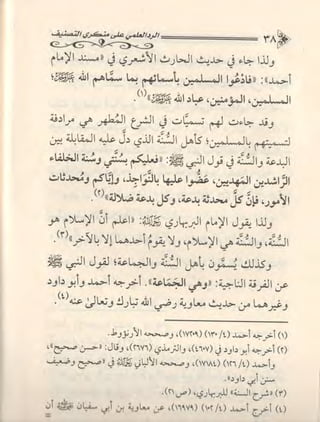 ٣٨ الرد العلمي على منكري التصنيف
ولذا جاء في حديث الحارث الأشعري في «مسند الإمام
أحمد»: «فادْعُوا المسلمين بأسمائهم بما سمَّاهم الله ﷻ؛
المسلمين، المؤمنين، عباد الله ﷻ»(١).
وقد جاءت لهم تسميَّات في الشرع المُطهر هي مرادفة
لتسميتهم بالمسلمين؛ كأهل السُّنَّة الذي دلَّ عليه المقابلة بين
البدعة والسُّنَّة في قول النبي ﷺ: «فعليكم بسُنَّتي وسُنة الخلفاء
الرَّاشدين المَهديين، عَضُّوا عليها بالنَّوَاجِذ، وإيَّاكم ومُحدثات
الأمور، فإنَّ كلَّ محدثة بدعة، وكل بدعة ضلالة»(٢).
ولذا يقول الإمام البربهاري: «اعلم أنَّ الإسلام هو
السُّنة، والسُّنة هي الإسلام، ولا يقومُ أحدهما إلا بالآخر»(٣).
وكذلك يُسمَّون بأهل السُّنة والجماعة؛ لقول النبي ﷺ
عن الفرقة الناجية: «وهي الجَمَاعة». أخرجه أحمد وأبو داود
وغيرهما من حديث معاوية رضي الله تبارك وتعالىٰ عنه(٤).
(١) أخرجه أحمد (٤/ ١٣٠) (١٧٢٠٩)، وصححه الأرنؤوط.
(٢) أخرجه أبو داود في (٤٦٠٧)، والترمذي (٢٦٧٦)، وقال: «حسن صحيح»،
وأحمد (٤/ ١٢٦) (١٧١٨٤)، وصححه الألباني في «صحيح وضعيف
سنن أبي داود».
(٣) «شرح السنة» للبربهاري، (ص٢١).
(٤) أخرج أحمد (٤/ ١٠٢) (١٦٩٧٩)، عن معاوية بن أبي سفيان أن